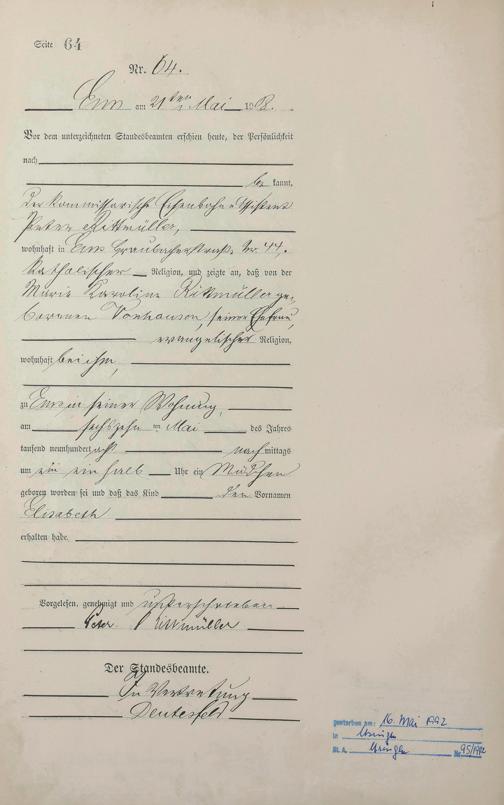 Seite 64
Nr. 64.
Ems am 21ten Mai 1908.
Vor dem unterzeichneten Standesbeamten erschien heute, der Persönlichkeit
nach
be kannt,
der kommissarische Eisenbahn-Assistent
Peter Rittmüller,
wohnhaft in Ems Graubacherstraße Nr. 44,
katholischer Religion, und zeigte an, daß von der
Marie Karoline Rittmüller ge-
borenen Vonhausen, seiner Ehefrau,
evangelischer Religion,
wohnhaft bei ihm,
zu Ems in seiner Wohnung,
am sechszehnten Mai des Jahres
tausend neunhundert acht nach mittags
um ein einhalb Uhr ein Mädchen
geboren worden sei und daß das Kind den Vornamen
Elisabeth
erhalten habe.
Vorgelesen, genehmigt und unterschrieben
Peter Rittmüller
Der Standesbeamte.
In Vertretung
gestorben am: 16. Mai 1992
in Usingen
St. A. Usingen Nr. 95/1992